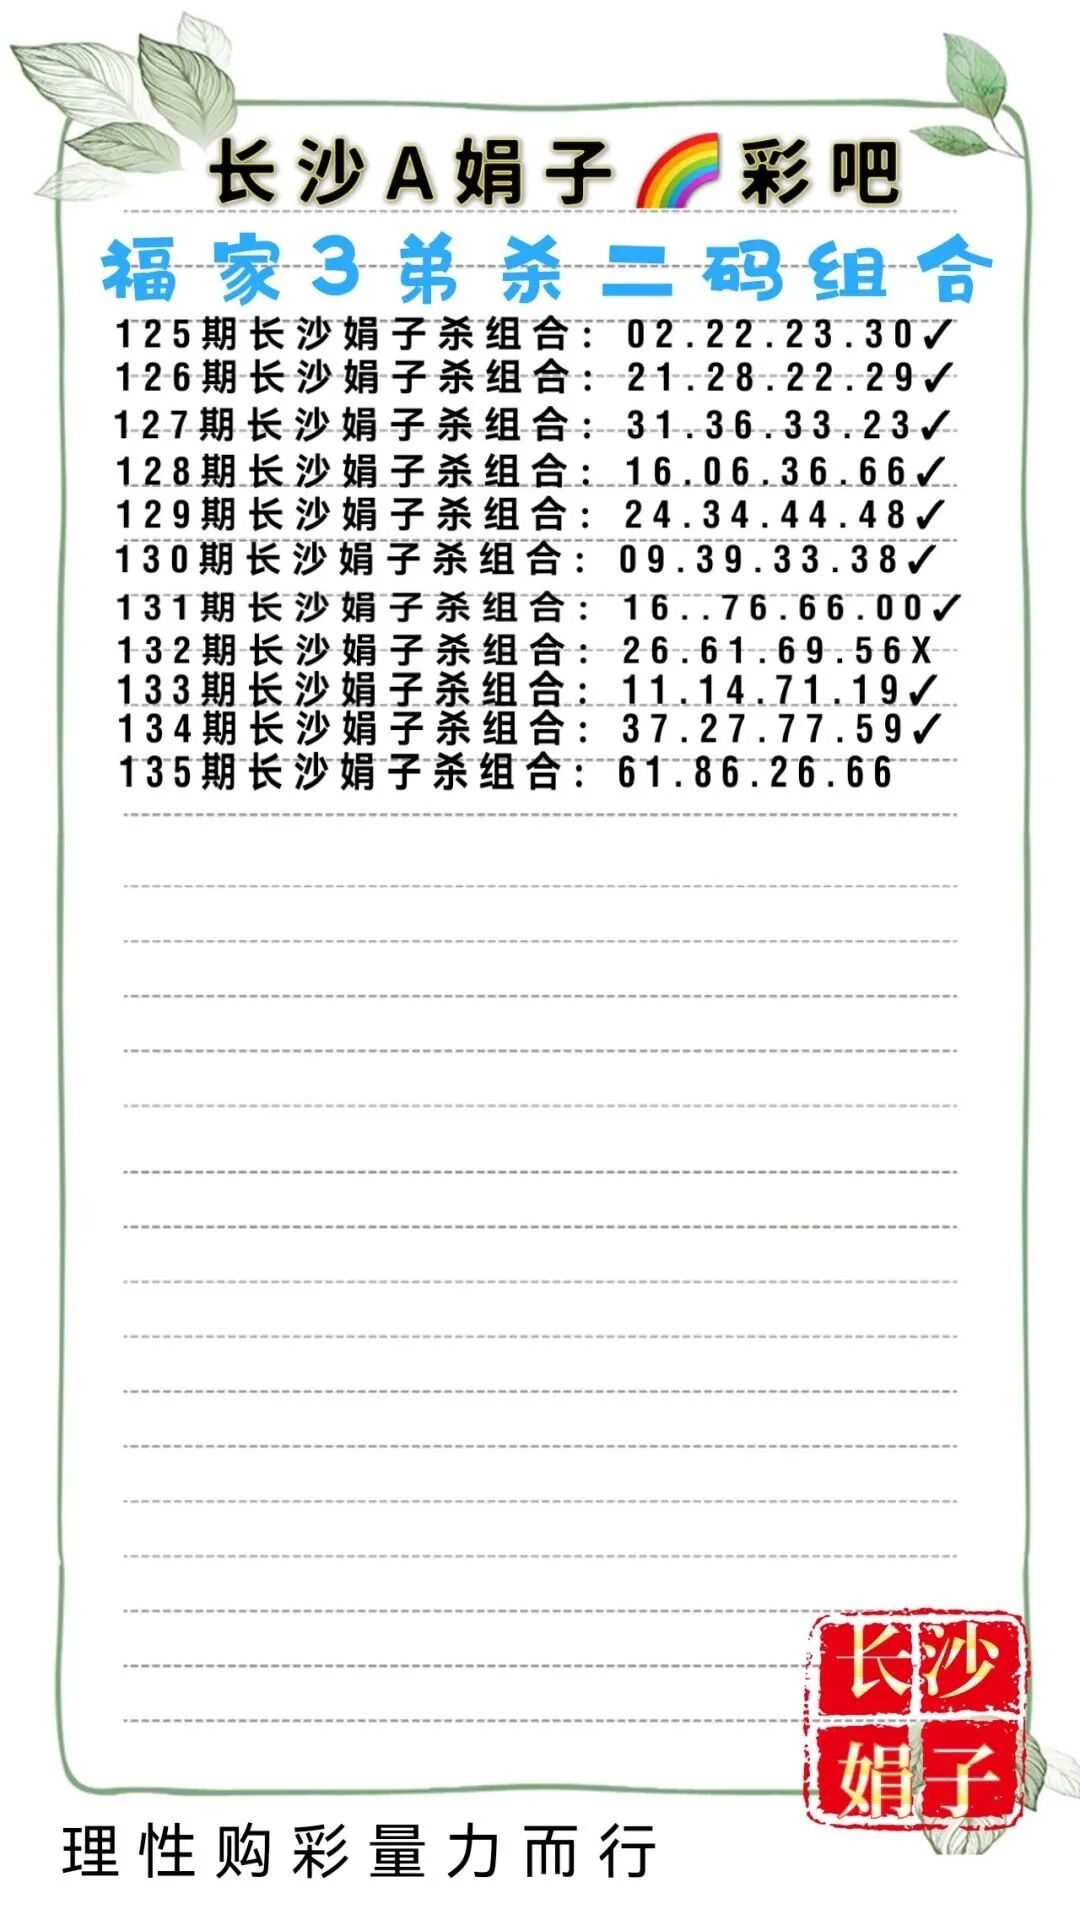 长沙A娟子🌈彩吧
福家3弟杀二码组合
125期长沙娟子杀组合：02.22.23.30✓
126期长沙娟子杀组合：21.28.22.29✓
127期长沙娟子杀组合：31.36.33.23✓
128期长沙娟子杀组合：16.06.36.66✓
129期长沙娟子杀组合：24.34.44.48✓
130期长沙娟子杀组合：09.39.33.38✓
131期长沙娟子杀组合：16..76.66.00✓
132期长沙娟子杀组合：26.61.69.56X
133期长沙娟子杀组合：11.14.71.19✓
134期长沙娟子杀组合：37.27.77.59✓
135期长沙娟子杀组合：61.86.26.66
长沙
娟子
理性购彩量力而行